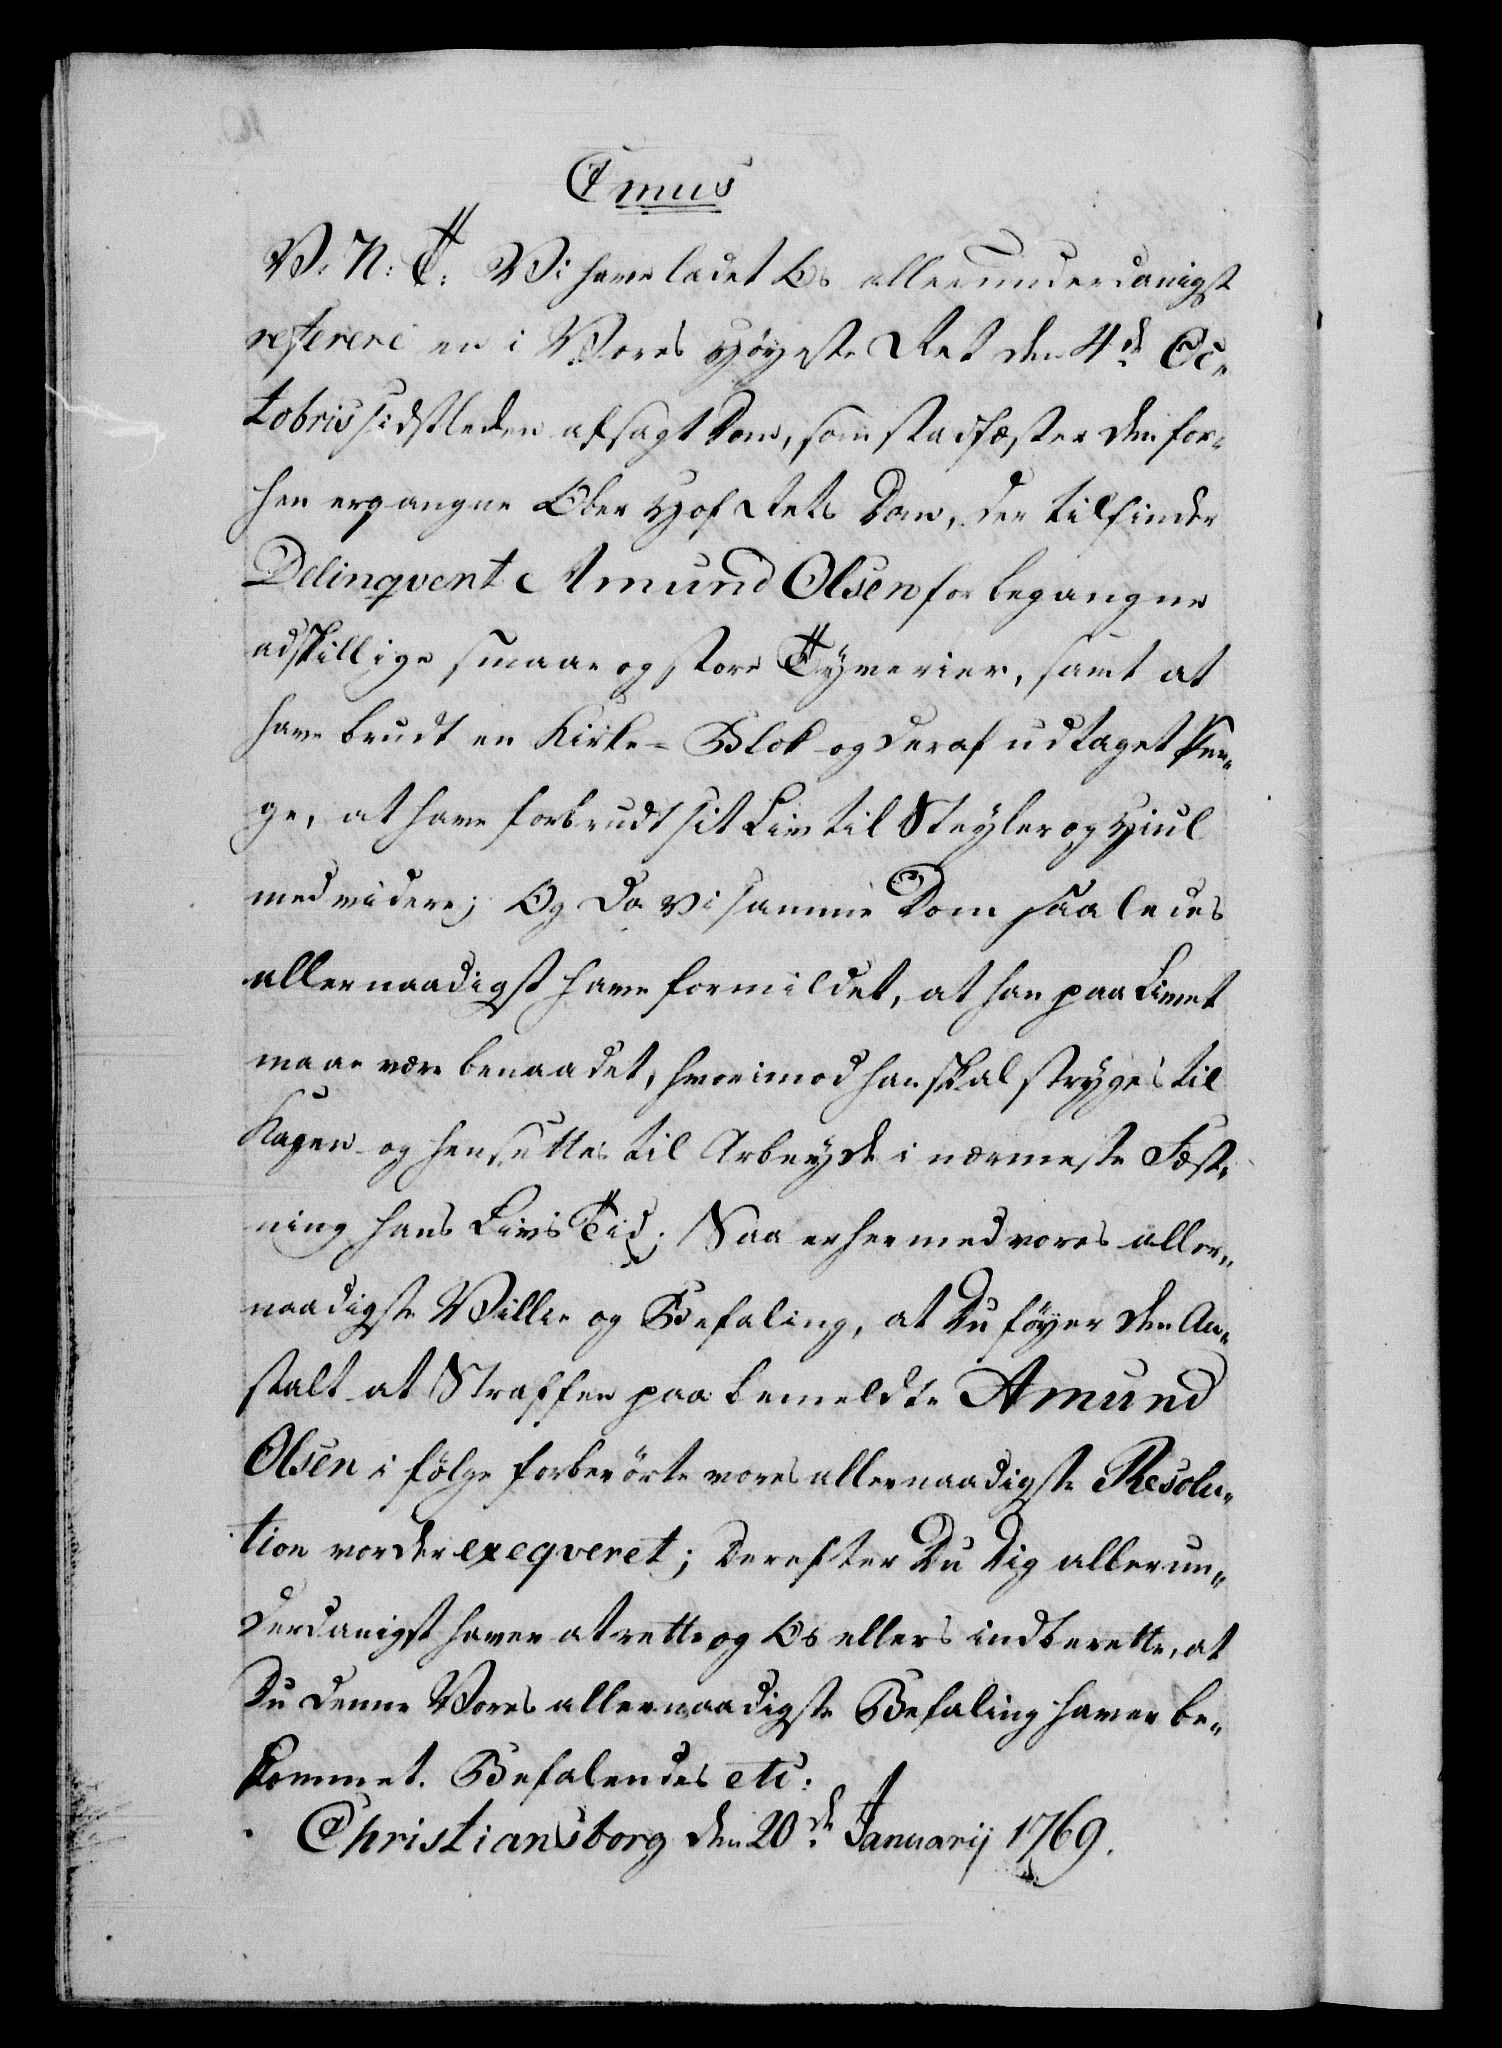 C7mus
V. N: T: Vi have ladet Os allerunderdanigst
referere en i Vores Høyeste Ret den 4de Oc-
tobris sidstleden afsagt Dom, som stadfæster den for-
hen ergangne Ober Hof Rets Dom, der tilfinder
Delinqvent Amund Olsen for begangne
adskillige smaae og store Tyverier, samt at
have brudt en Kirke-Blok og deraf udtaget Pen-
ge, at have forbrudt sit Liv til Steyler og Hiul
med videre; Og da Vi samme Dom saaledes
allernaadigst have formildet, at han paa Livet
maae være benaadet, hvorimod han skal stryges til
Kagen og hensættes til Arbeyde i nærmeste Fæst-
ning hans Livs Tid; Saa er hermed vores aller-
naadigste Villie og Befaling, at Du føyer den An-
stalt at Straffen paa bemeldte Amund
Olsen i følge forberørte vores allernaadigste Resolu-
tion vorder exeqveret; Derefter Du dig allerun-
derdanigst haver at rette og Os ellers indberette, at
Du denne Vores allernaadigste Befaling haver be-
kommet. Befalendes etc:
Christiansborg den 20de Januarij 1769.